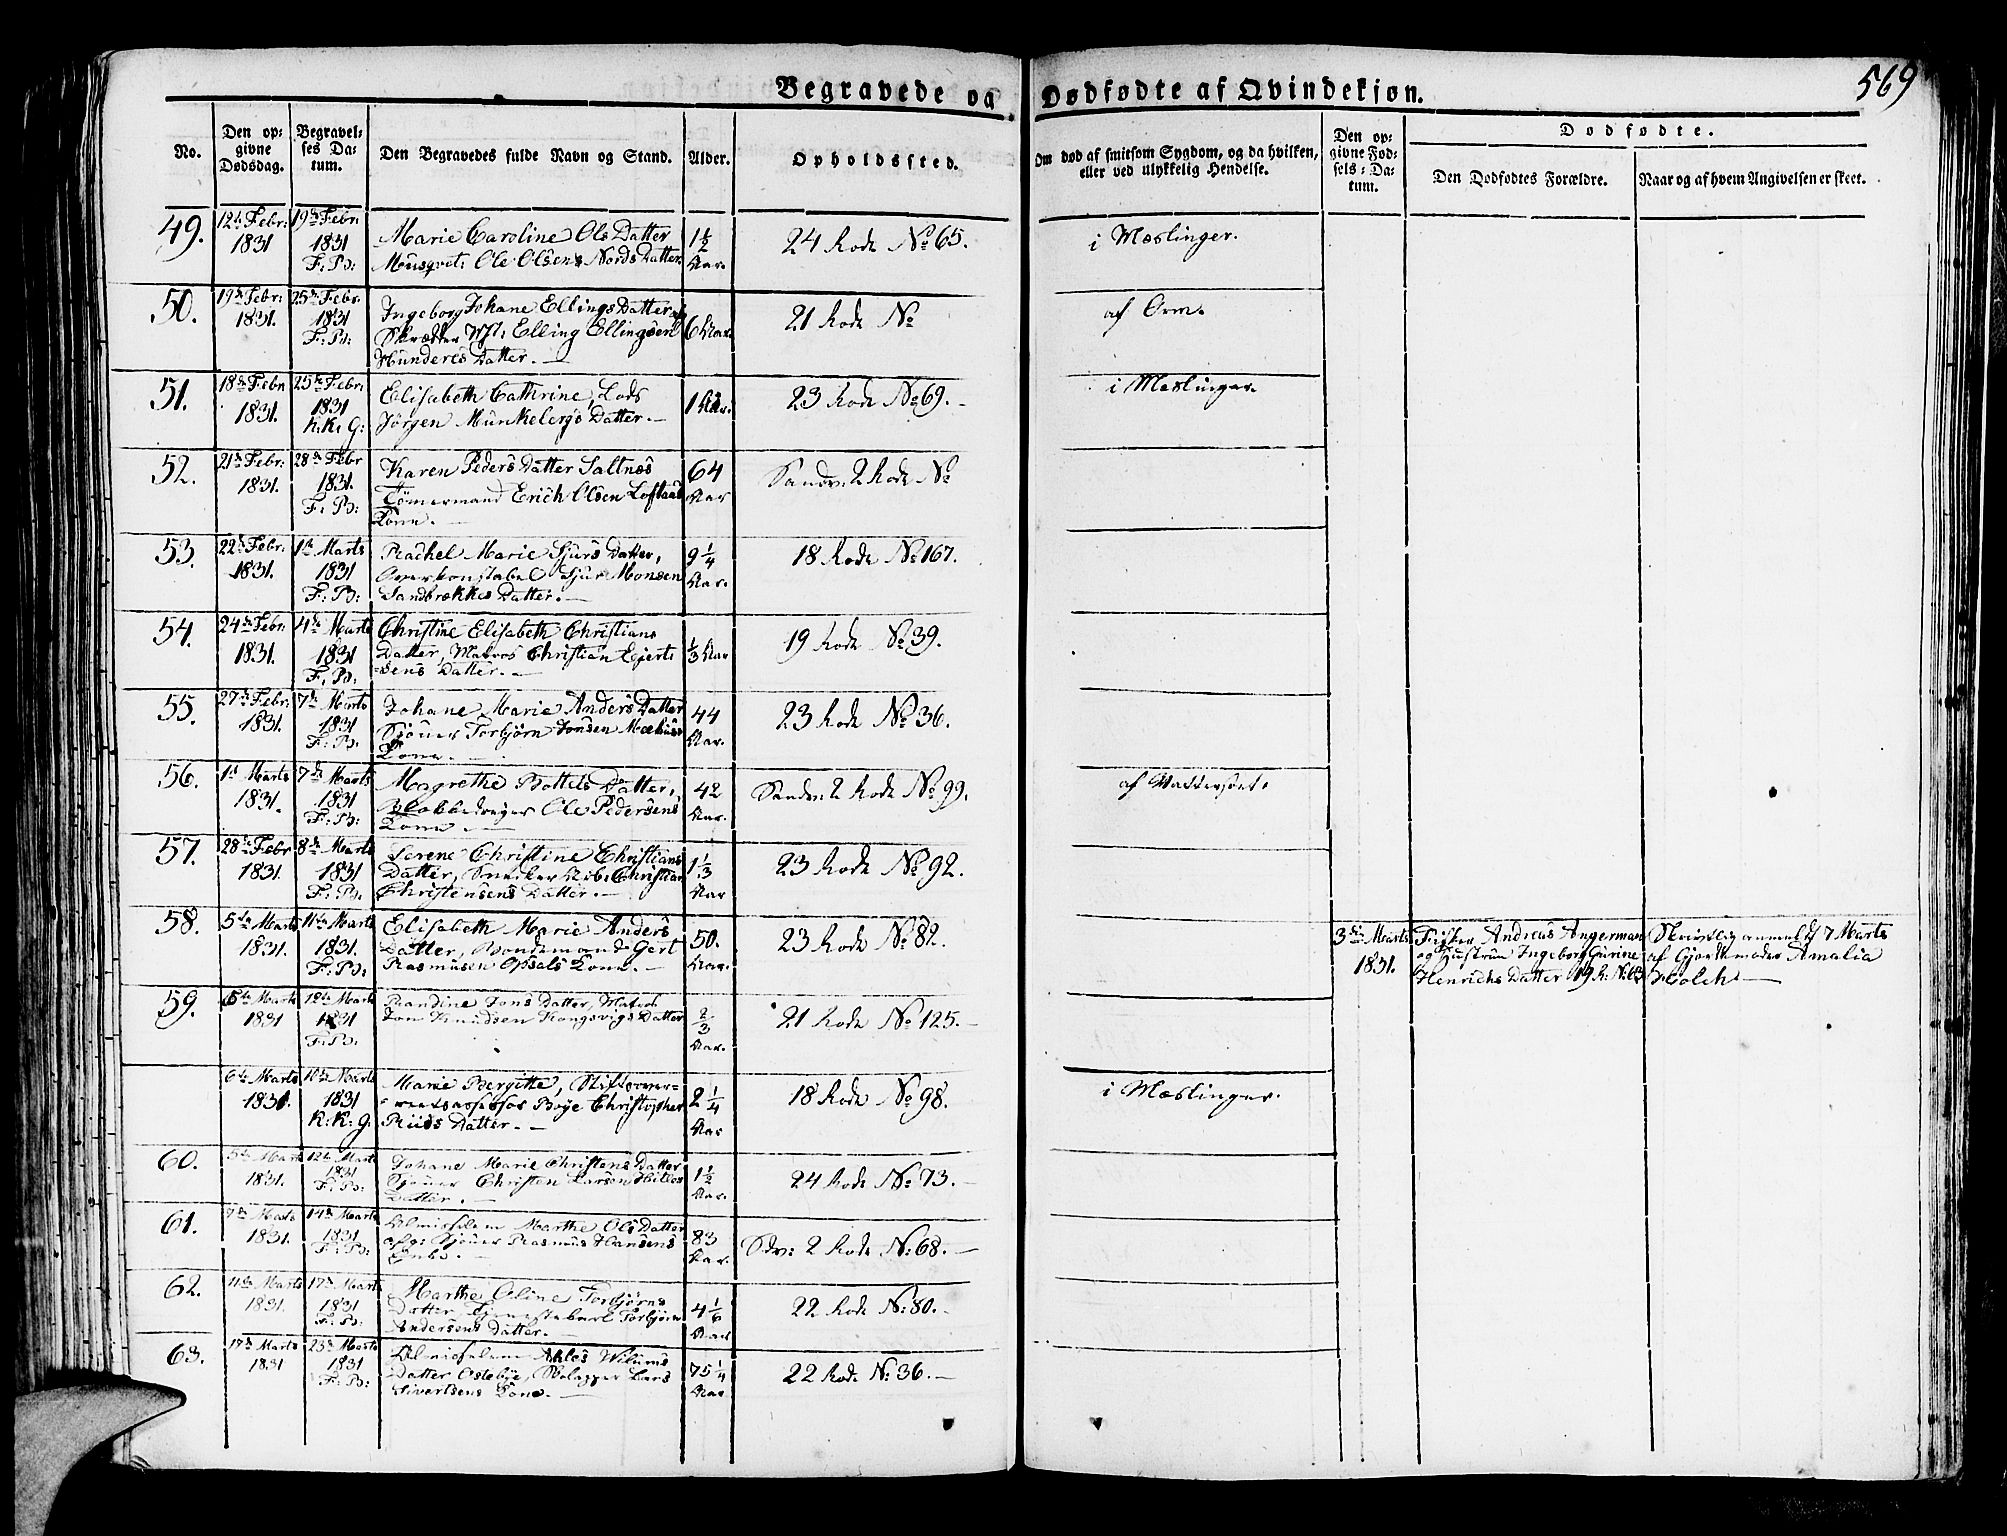 569
Begravede og Dødfødte af Qvindekjøn.
No.
Den op-
givne
Dødsdag.
Begravel-
ses Da-
tum.
Den Begravedes fulde Navn og Stand.
Alder.
Opholdssted.
Om død af smitsom Sygdom, og da hvilken,
eller ved ulykkelig Hendelse.
Den op-
givne Fød-
sels-Da-
tum.
Dødfødte.
Den Dødfødtes Forældre.
Naar og af hvem Angivelsen er skeet.
49. 12te Febr: 1831 19de Febr: 1831 F: P:
Marie Caroline Ols Datter
Musqvet: Ole Olsens Nords Datter
1 1/2 Aar.
24 Rode No 65.
i Mæslinger.
50. 19de Febr: 1831. 25de Febr: 1831 F: P:
Ingeborg Johane Ellings Datter
Skrædder Elling Ellingsen
Hunderes Datter.
6 Aar
21 Rode No
af Orm.
51. 18de Febr 1831. 25de Febr: 1831 K: K: G:
Elisabeth Cathrine, Lods
Jörgen Munkebergs Datter.
1 Aar.
23 Rode No 69.
i Mæslinger.
52. 21de Febr: 1831. 28de Febr 1831. F: P:
Karen Peders Datter Saltnæs
Tömermand Erich Olsen
Kone.
64 Aar
Sandv: 2 Rode No
53. 22de Febr: 1831. 1te Marts 1831 F: P:
Rachel Marie Sjurs Datter,
Overkonstabel Sjur Monsen
Sandbrækkes Datter.
9 1/4 Aar.
18 Rode No 167.
54. 24de Febr: 1831. 4de Marts 1831 F: P:
Christine Elisabeth Christians
Datter, Matros Christian Ejert-
sens Datter.
1/3 Aar
19 Rode No 39.
55. 27de Febr: 1831. 7de Marts 1831 F: P:
Johane Marie Anders Datter
Sjöuer Torbjörn Jonsen
Kone.
44 Aar.
23 Rode No 36.
56. 1st Marts 1831. 7de Marts 1831 F: P:
Magrethe Bottels Datter,
Ole Pedersens
Kone.
42 Aar.
Sandv: 2 Rode No 99.
af Vattersoet.
57. 28de Febr 1831. 8de Marts 1831 F: P:
Serene Christine Christians
Datter, Snedker Christian
Christensens Datter.
1 1/3 Aar
23 Rode No 92.
58. 5te Marts 1831. 11te Marts 1831. F: P:
Elisabeth Marie Anders
Datter, Bondemand Gert
Rasmusen Opsals Kone.
50. Aar.
23 Rode No 82.
3die Marts 1831.
Fisker Andreas Angerman
og Hustrue Ingeborg Gurine
Henrichs Datter 19 R. No 63
Skriftlig anmeldt 7 Marts
af Gjordemoder Amalia
Holch
59. 6te Marts 1831 12te Marts 1831 F: P:
Randine Jons Datter, Matros
Jon Knudsen Kongsvigs Datter
2/3 Aar.
21 Rode No 125.
6te Marts 1831. 10de Marts 1831 K: K: G:
Marie Bergitte, Stiftsover-
retsassessor Boye Christopher
Riids Datter.
2 1/4 Aar
18 Rode No 98.
i Mæslinger.
60. 5te Marts 1831. 12te Marts 1831 F: P:
Johane Marie Christens Datter
Sjöuer Christen Larsen Hilles
Datter.
1 1/2 Aar.
24 Rode No 73.
61. 7de Marts 1831. 14de Marts 1831 F: P:
Almisselem Marthe Ols Datter
afg: Sjöuer Rasmus Hansens
Enke.
83 Aar.
Sdv: 2 Rode No: 68.
62. 11te Marts 1831. 17de Marts 1831 F: P:
Marthe Oline Torbjörns
Datter, Tjenestekarl Torbjörn
Andersens Datter.
4 1/6 Aar
22 Rode No: 80.
63. 17de Marts 1831 23de Marts 1831 F: P:
Almisselem Wilums
Datter Ostebye, Lars
Sivertsens Kone.
75 1/4 Aar
22 Rode No: 36.